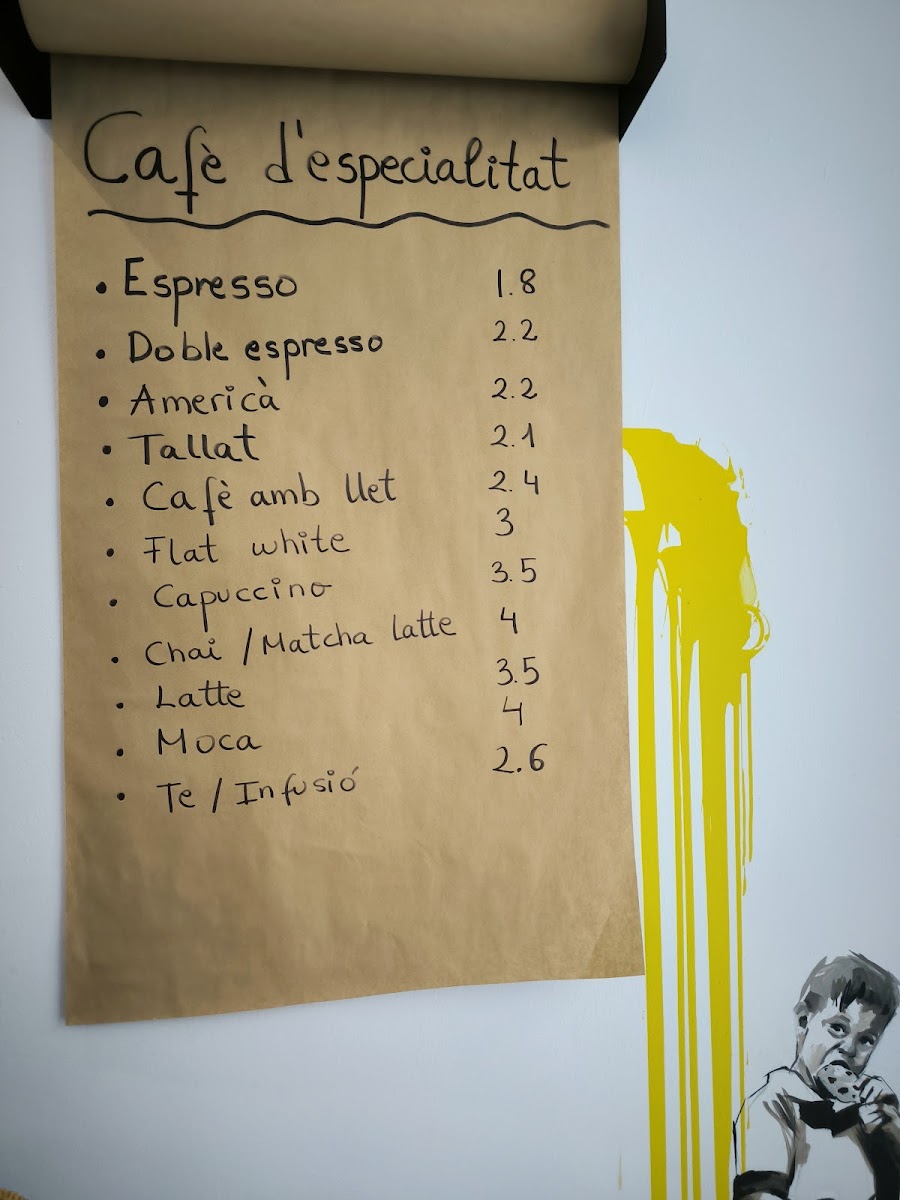 Cafè d'especialitat
• Espresso 1.8
• Doble espresso 2.2
• Americà 2.2
• Tallat 2.1
• Cafè amb llet 2.4
• Flat white 3
• Capuccino 3.5
• Chai / Matcha latte 4
• Latte 3.5
• Moca 4
• Te / Infusió 2.6